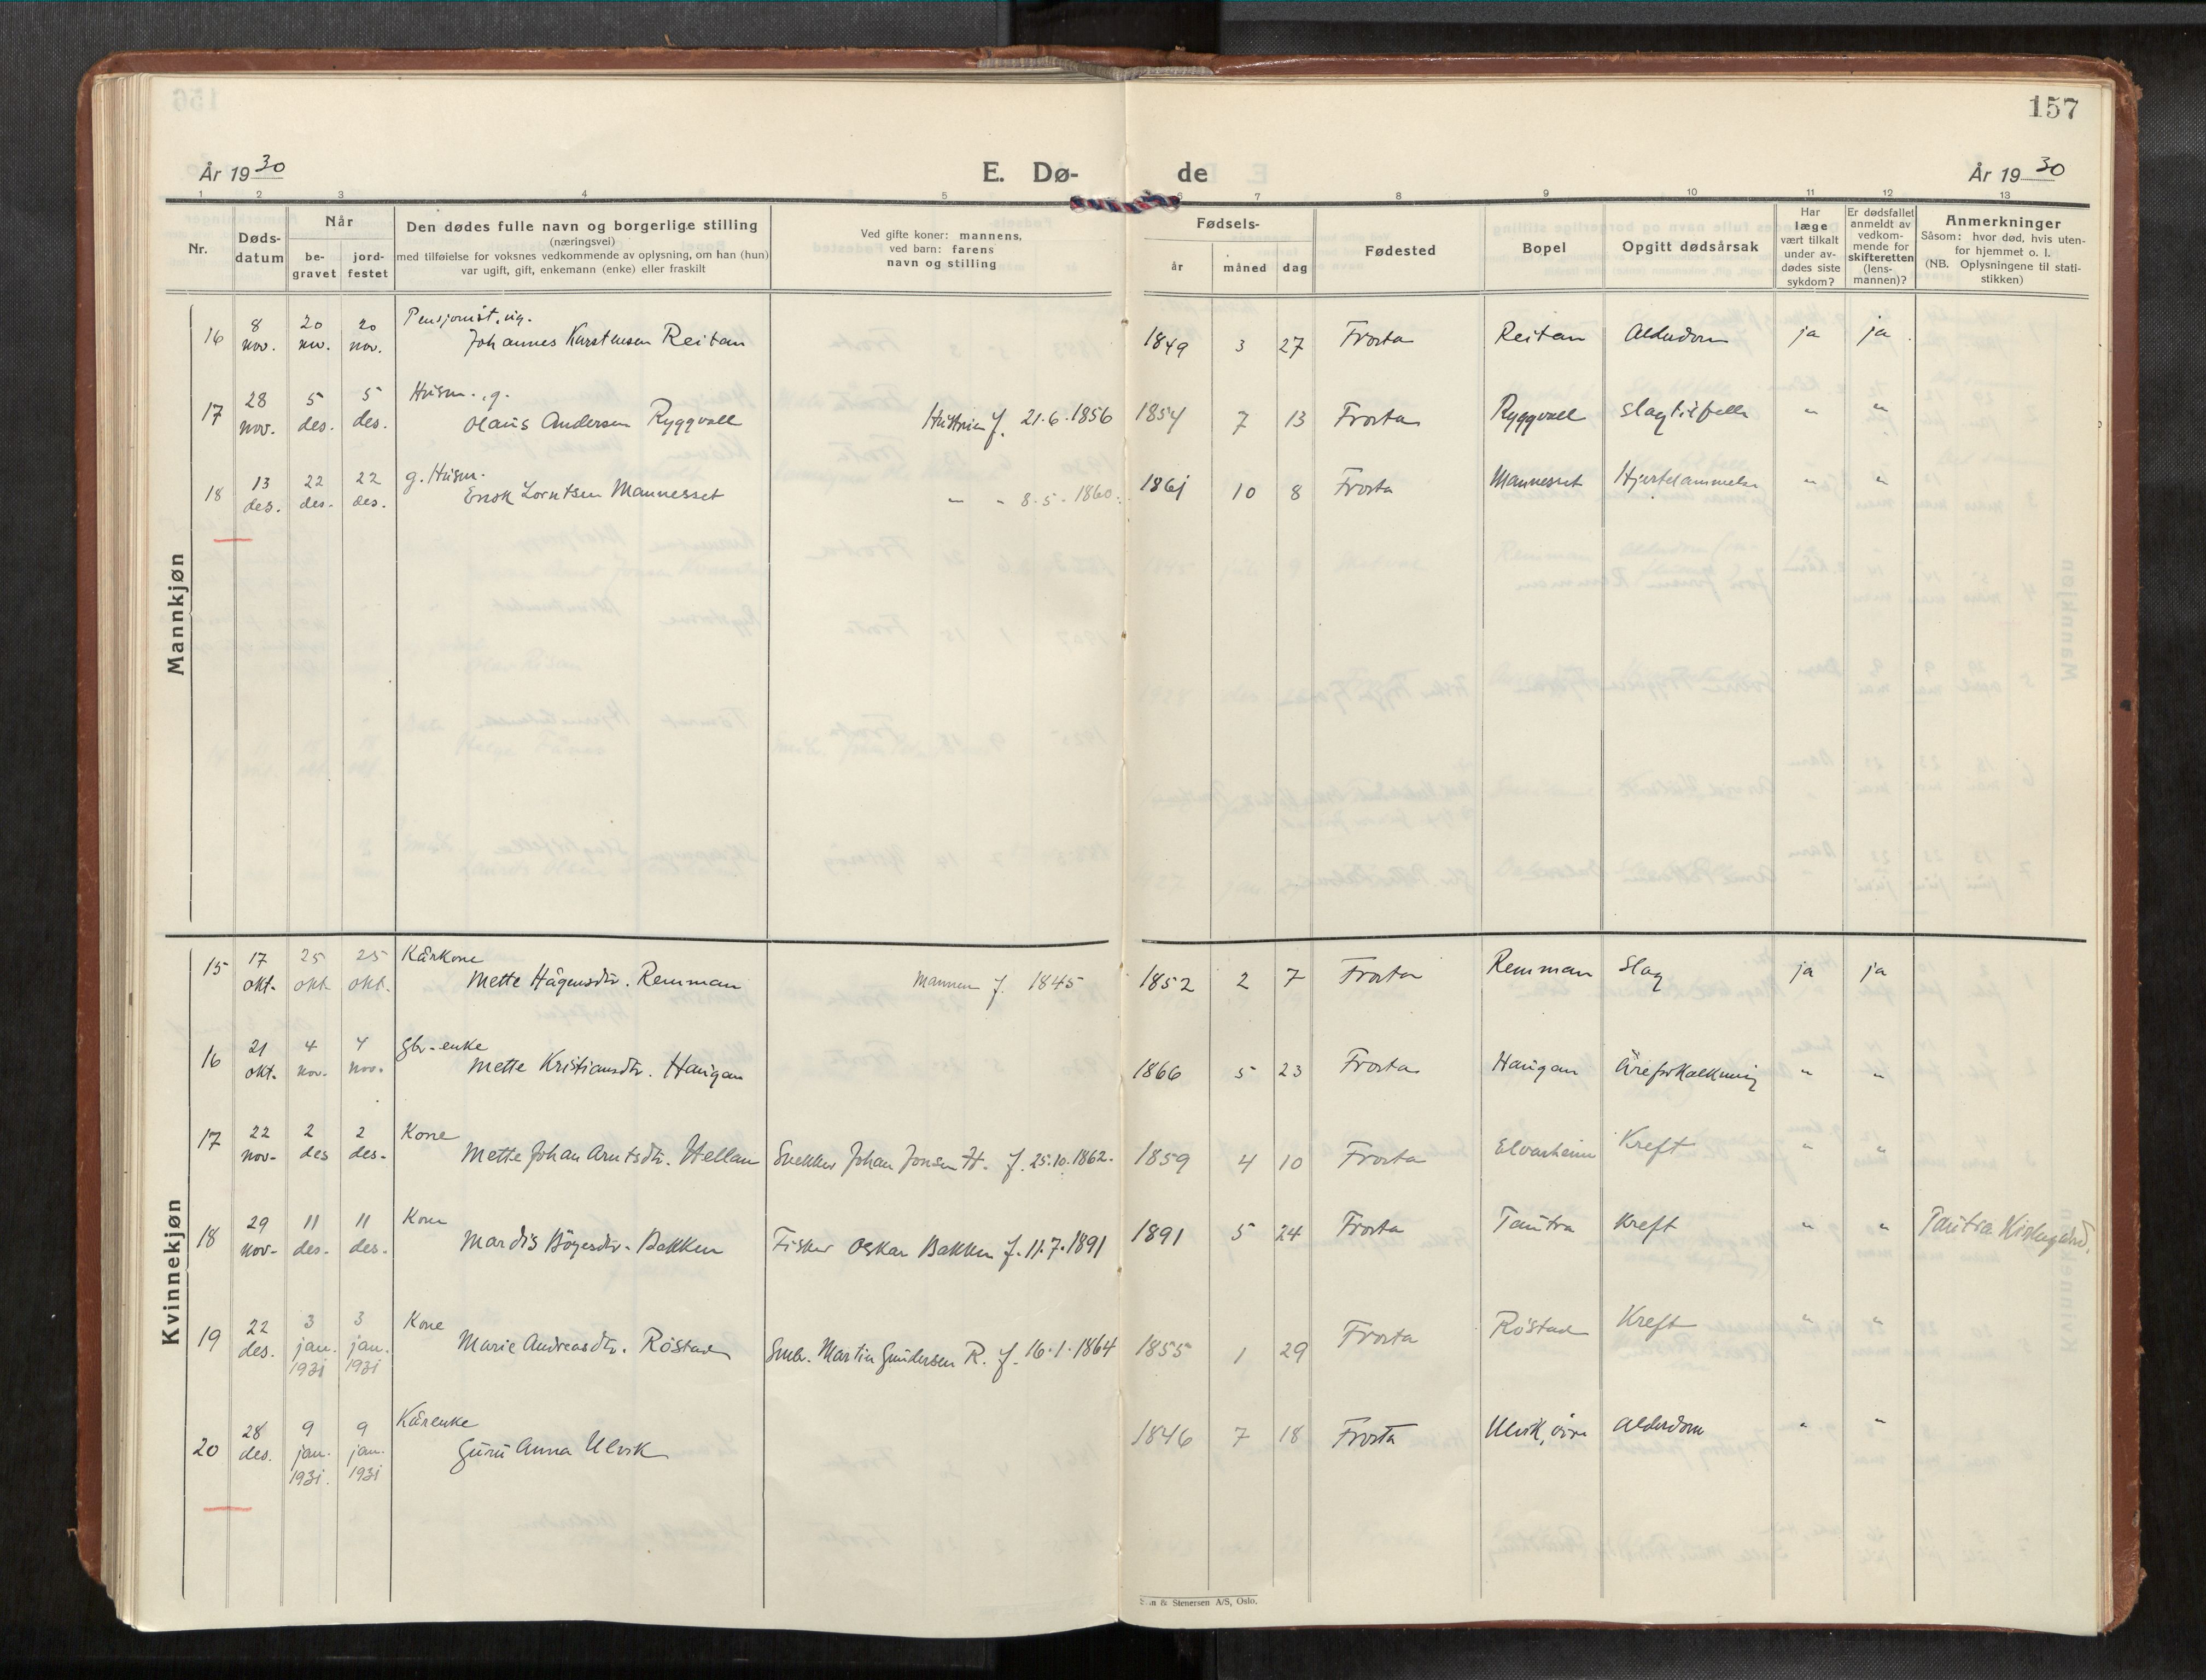 157
År 1930
E. Dø-
de
År 1930
1 2 3 4 5 6 7 8 9 10 11 12 13
Nr.
Døds-
datum
Når
be-
gravet
jord-
festet
Den dødes fulle navn og borgerlige stilling
(næringsvei)
med tilføielse for voksnes vedkommende av oplysning, om han (hun)
var ugift, gift, enkemann (enke) eller fraskilt
Ved gifte koner: mannens,
ved barn: farens
navn og stilling
Fødsels-
år
måned
dag
Fødested
Bopel
Opgitt dødsårsak
Har
læge
vært tilkalt
under av-
dødes siste
sykdom?
Er dødsfallet
anmeldt av
vedkom-
mende for
skifteretten
(lens-
mannen)?
Anmerkninger
Såsom: hvor død, hvis uten-
for hjemmet o. l.
(NB. Oplysningene til stati-
stikken)
Mannkjøn
16 8 nov. 20 nov. 20 nov. Pensjonist, ug.
Johannes Karstensen Reitan 1849 3 27 Frosta Reitan Alderdom ja ja
17 28 nov. 5 des. 5 des. Husm., g.
Olaus Andersen Ryggvoll Hustruen f. 21.6.1856 1854 7 13 Frosta Ryggvoll Slagtilfelle " "
18 13 des. 22 des. 22 des. g. Husm.
Enok Lorntsen Mannesset " " 8.5.1860. 1861 10 8 Frosta Mannesset Hjertelammelse " "
Kvinnekjøn
15 17 okt. 25 okt. 25 okt. Kårkone
Mette Hågensdtr. Remman Mannen f. 1845 1852 2 7 Frosta Remman Slag ja ja
16 21 okt. 4 nov. 4 nov. Gbr.-enke
Mette Kristiansdtr. Haugan 1866 5 23 Frosta Haugan Åreforkalkning " "
17 22 nov. 2 des 2 des. Kone
Mette Johan Arntsdtr. Hellan Snekker Johan Jonsen H. f. 25.10.1862. 1859 4 10 Frosta Elvarheim Kreft " "
18 29 nov. 11 des. 11 des. Kone
Mardis Böyesdtr. Bakken Fisker Oskar Bakken f. 11.7.1891 1891 5 24 Frosta Tautra Kreft " " Tautra
19 22 des. 3 jan. 1931 3 jan. 1931 Kone
Marie Andreasdtr. Röstad Smbr. Martin Gundersen R. f. 16.1.1864 1855 1 29 Frosta Röstad Kreft " "
20 28 des. 9 jan. 1931. 9 jan. 1931 Kårenke
Guru Anna Ulvik 1846 7 18 Frosta Ulvik, övre Alderdom " "
& Stenersen A/S, Oslo.